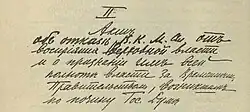 II
Актъ
объ отказѣ В. К. М. Ал. отъ
воспріятія верховной власти
и о признаніи имъ всей
полноты власти за Временнымъ
Правительствомъ, возникшимъ
по почину Гос. Думы